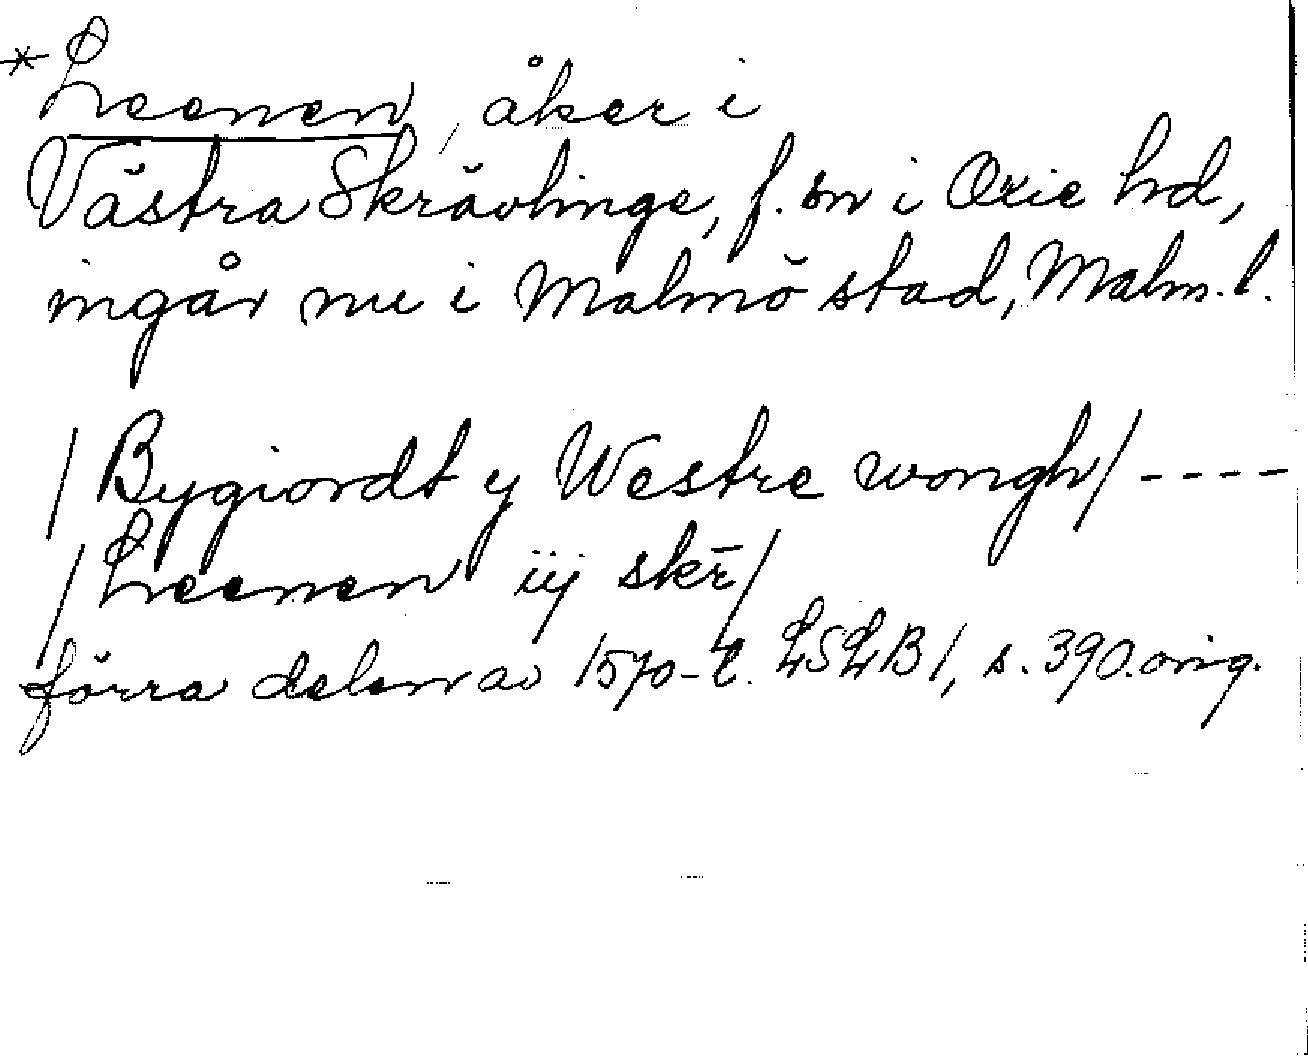 *Leenen, åker i
Västra Skrävlinge, f. sn i Oxie hd,
ingår nu i Malmö stad, Malm. l.
/Bygiordt y Westre wongh/ ----
/Leenen iij skr̄/
förra delen av 1570-t. LSLB 1, s. 390. orig.